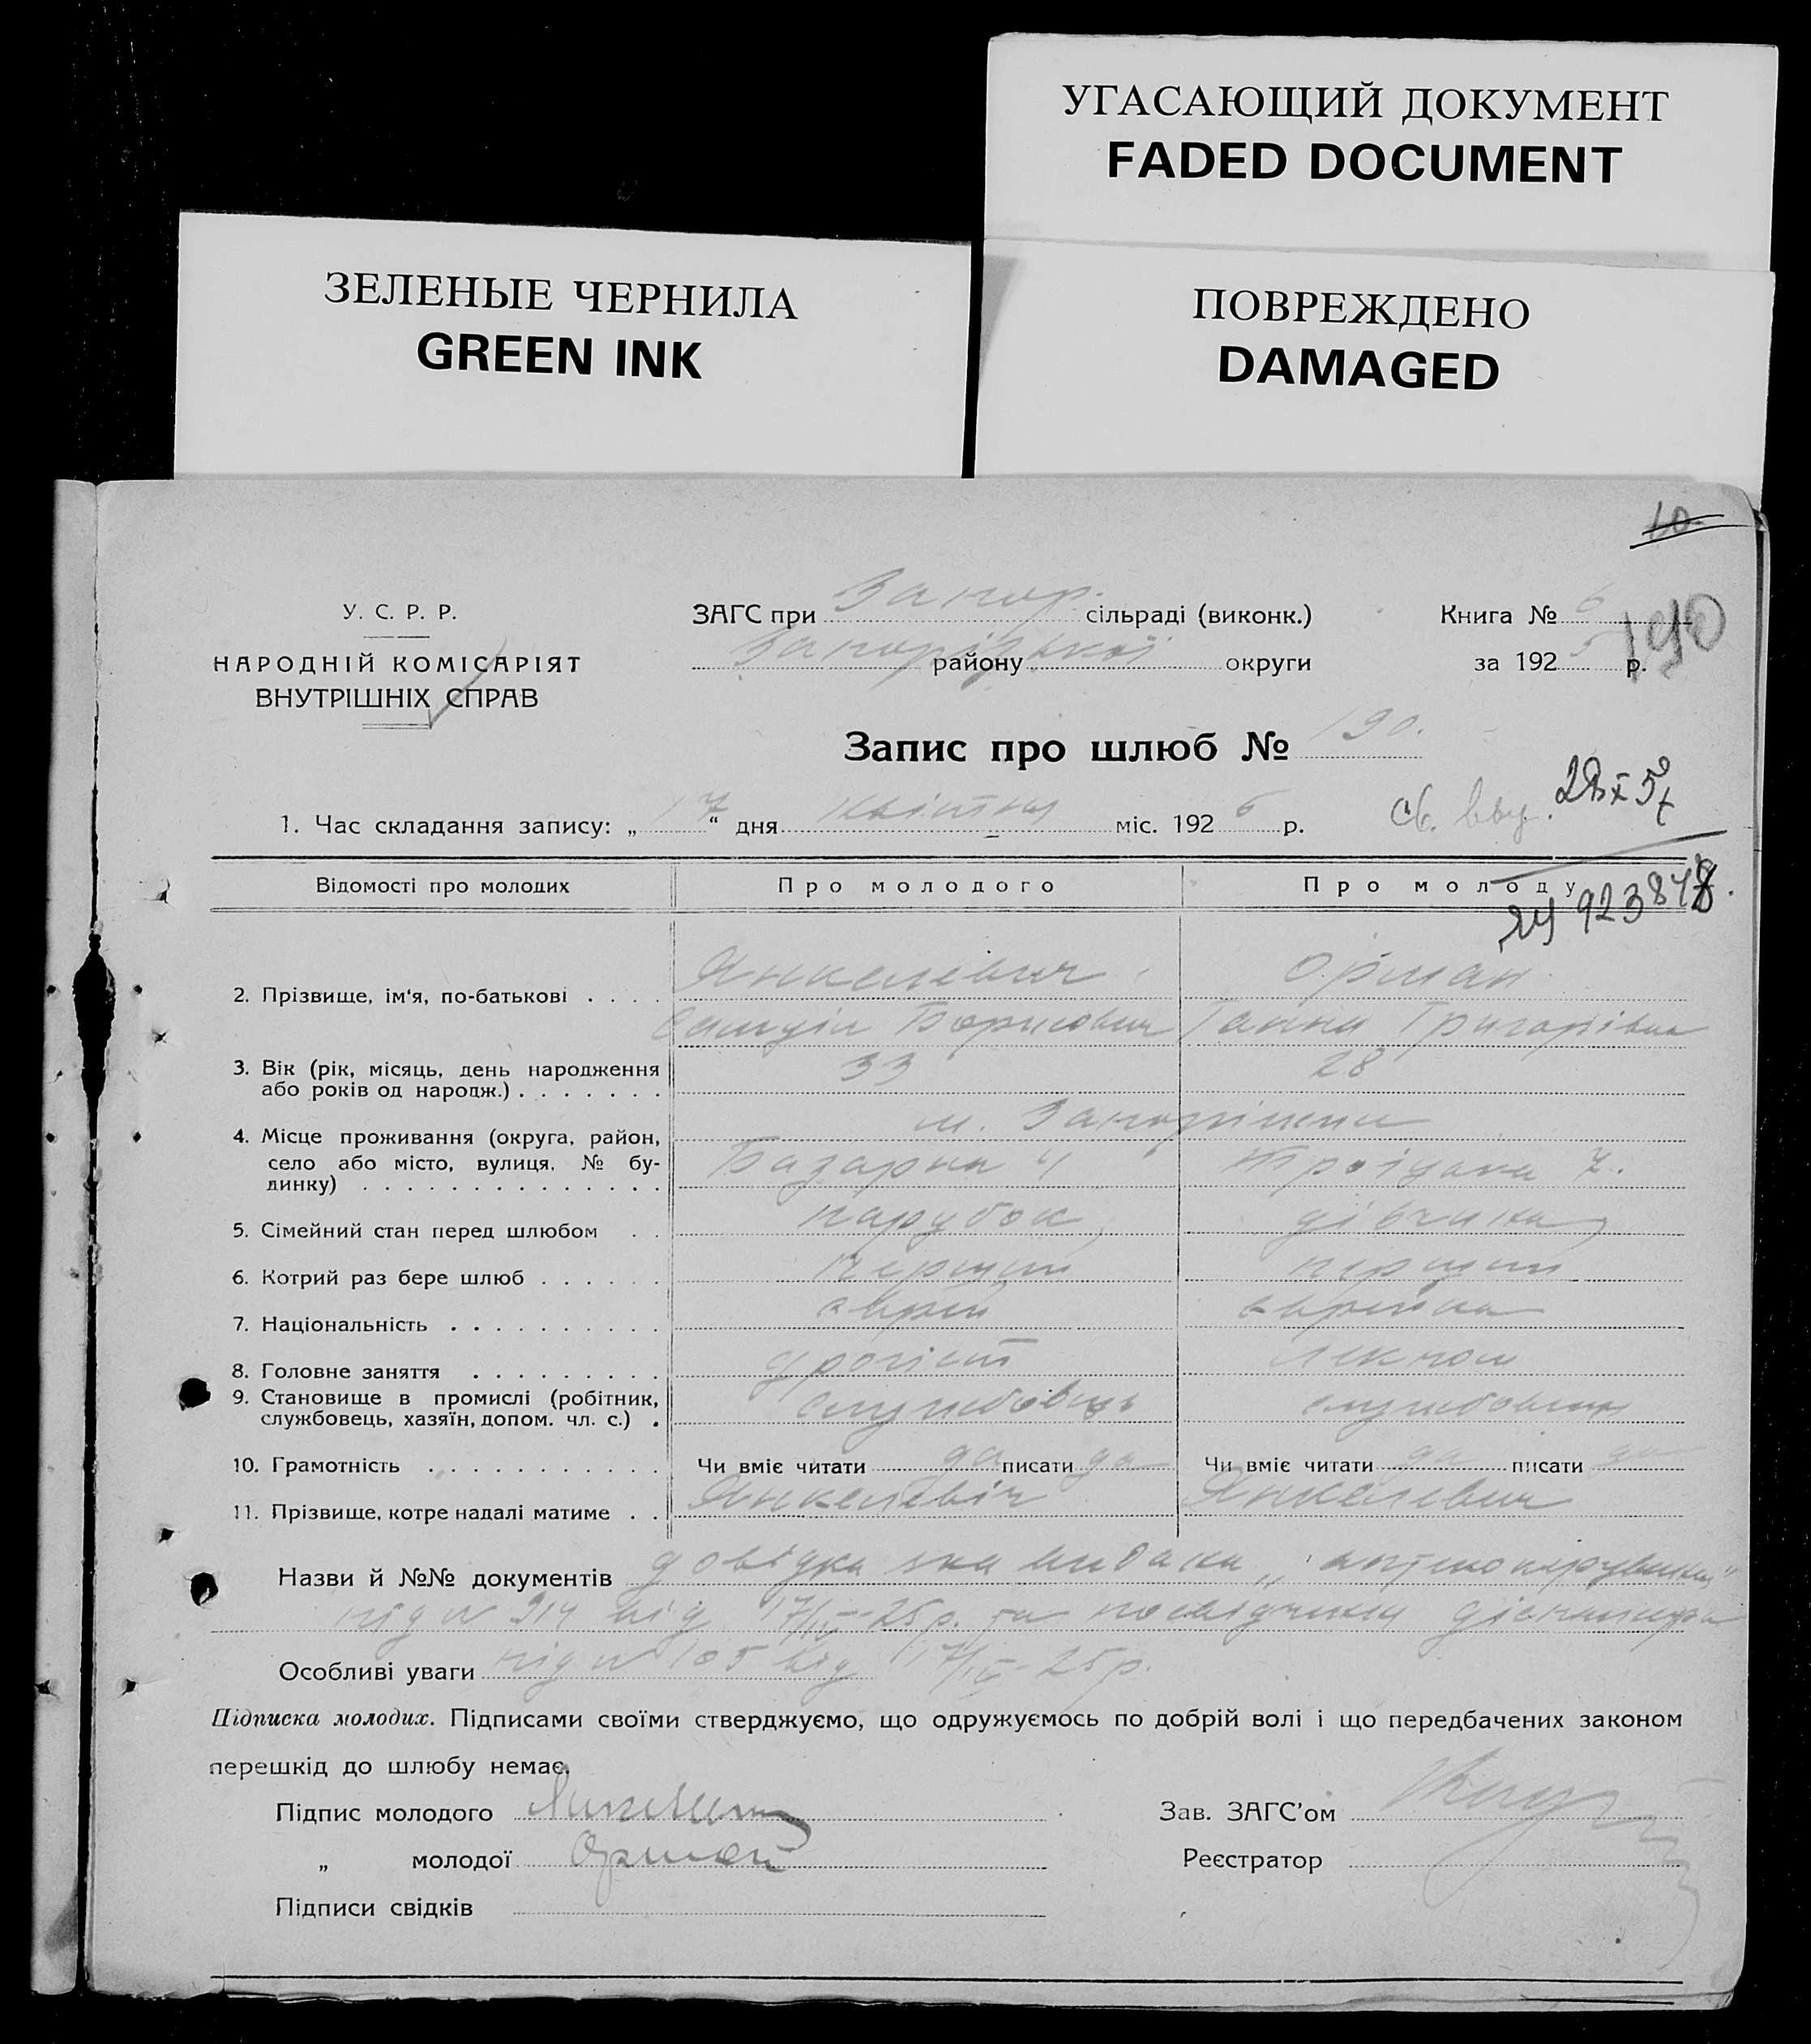 УГАСАЮЩИЙ ДОКУМЕНТ
FADED DOCUMENT
ЗЕЛЕНЫЕ ЧЕРНИЛА
GREEN INK
ПОВРЕЖДЕНО
DAMAGED
10
У. С. Р. Р.
НАРОДНІЙ КОМІСАРІЯТ
ВНУТРІШНІХ СПРАВ
ЗАГС при Запор. сільраді (виконк.)
Запорізької району округи
Книга № 6
за 192 5 р.
190
Запис про шлюб № 190.
1. Час складання запису: „17“ дня квітня міс. 192 р.
Відомості про молодих Про молодого Про молоду
2. Прізвище, ім'я, по-батькові . . . . Янкелевич Орман
Самуїл Борисович Ганна Григоріївна
3. Вік (рік, місяць, день народження 33 28
або років од народж.) . . . . . . .
4. Місце проживання (округа, район, м. Запоріжжя
село або місто, вулиця, № бу- Базарна 4 Троїцька 7.
динку) . . . . . . . . . . . . . .
5. Сімейний стан перед шлюбом . . парубок, дівчина,
6. Котрий раз бере шлюб . . . . . . перший перший
7. Національність . . . . . . . . . . єврей єврейка
8. Головне заняття . . . . . . . . . дрогіст лекпом
9. Становище в промислі (робітник, службовець службовиця
службовець, хазяїн, допом. чл. с.) .
10. Грамотність . . . . . . . . . . . Чи вміє читати да писати да Чи вміє читати да писати да
11. Прізвище, котре надалі матиме . . Янкелевіч Янкелевич
Назви й №№ документів довідка яка видана
під № 314 від 17/IV-25р. та посвідчення
Особливі уваги під № 105 від 17/IV-25р.
Підписка молодих. Підписами своїми стверджуємо, що одружуємось по добрій волі і що передбачених законом
перешкід до шлюбу немає.
Підпис молодого Зав. ЗАГС'ом
„ молодої Орман Реєстратор
Підписи свідків